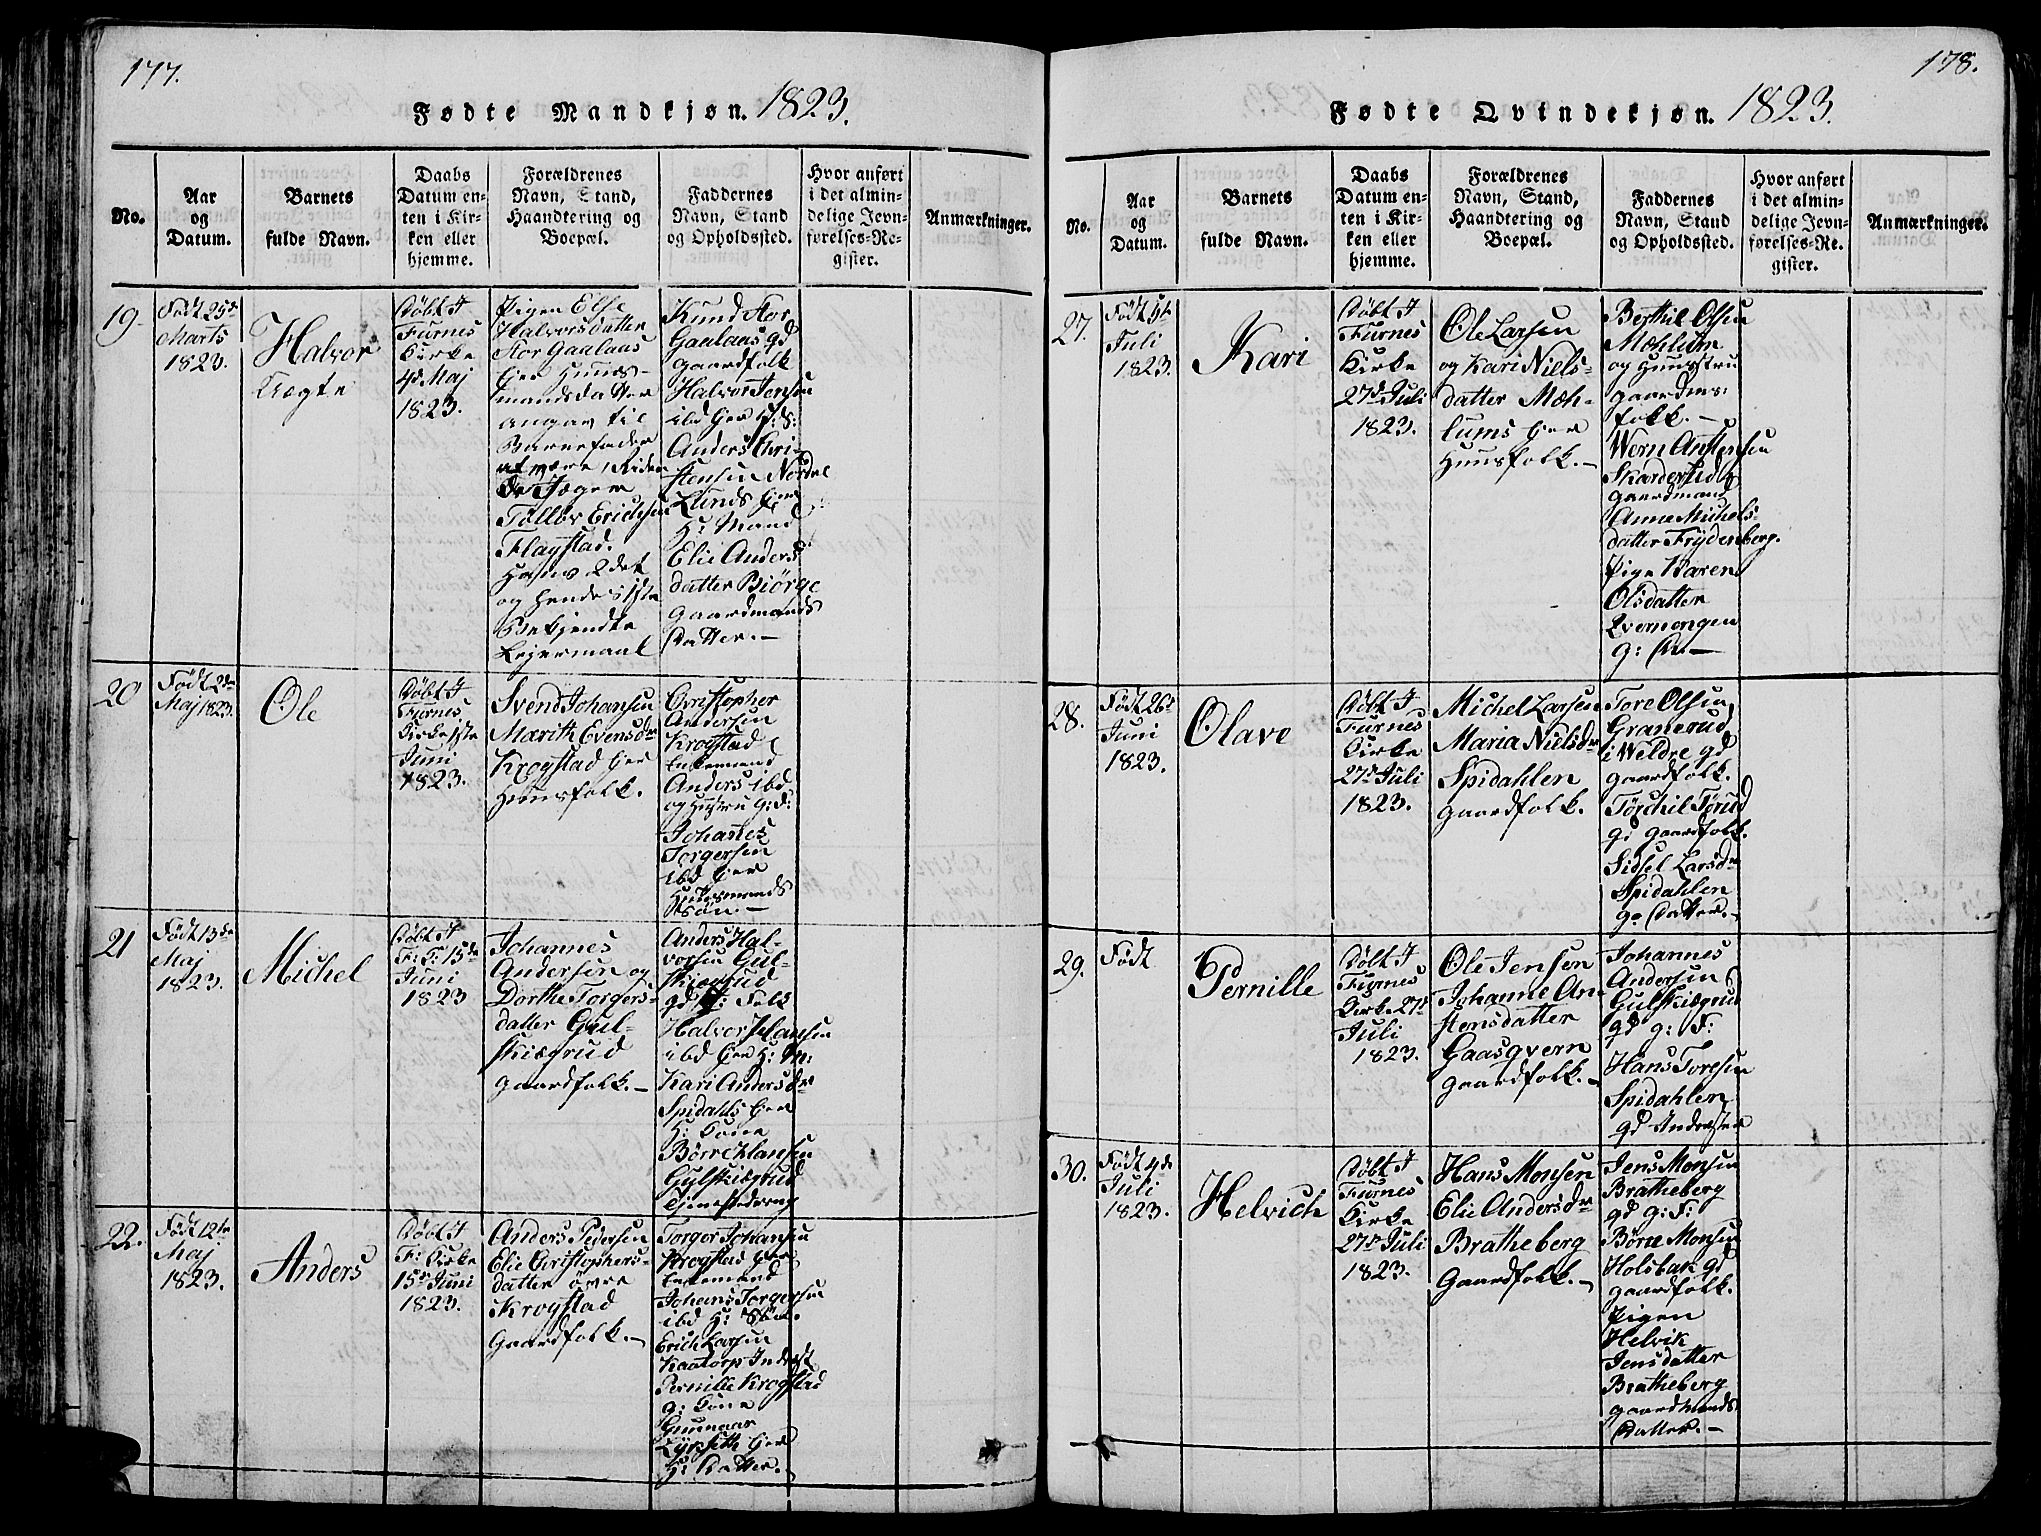 177.
Fødte Mandkjøn. 1823.
No.
Aar
og
Datum.
Barnets
fulde Navn.
Daabs
Datum en-
ten i Kir-
ken eller
hjemme.
Forældrenes
Navn, Stand,
Haandtering og
Boepæl.
Faddernes
Navn, Stand
og Opholdssted.
Hvor anført
i det almin-
delige Jevn-
førelses-Re-
gister.
Anmærkninger.
19.
Født 25de
Marts
1823.
Halvor
Uægte
Døbt I
Furnes
Kirke
4d. Maj
1823.
Pigen Else
Halvorsdatter
Stor Gaalaas
Eier Huus-
mandsdatter
angav til
Barnefader
at være
Jæger
Tollov Erichsen
Flagstad.
Hans 2det
og hendes 1ste
Bekjendte
Lejermaal
Knud Stor
Gaalaas gd
Gaardfolk
Halvor Jensen
ibd Eier
Anders Chri-
stensen Nordre
Lunds Eier
H: Mand
Elie Anders
datter Biørge
Gaardmands
Datter.-
20
Født 2den
Maj 1823.
Ole
Døbt I
Furnes
Kirke 1ste
Juni
1823.
Svend Johansen
Marith Evensdr
Krogstad Eier
Huusfolk.
Christopher
Andersen
Krogstad
Enkemand
Anders ibd
og Hustru g: F:
Johanes
Torgersen
ibd Eier
Huusmands
søn.-
21
Født 13de
Maj
1823.
Michel
Døbt I
F: K: 15de
Juni
1823
Johannes
Andersen og
Dorthe Torgers-
datter Gul-
skiøgrud
Gaardfolk.-
Anders Hal-
vorsen Gul-
skiøgrud
gd
Halvor Hansen
ibd Eier H: M:
Kari Andersdr
Spidahls Eier
H: Kone
Børre Hansen
Gulskiøgrud
Tjenestedreng
22.
Født 12te
Maj
1823.
Anders
Døbt I
F: Kirke
15d Juni
1823.
Anders Pedersen
Elie Christophers-
datter øvre
Krogstad
Gaardfolk.-
Torger Johansen
Krogstad Eier
Enkemand
Johans Torgersen
ibd H: Søn.
Erich Larsen
Kaatorp Inderst
Pernille Krogstad
g: Kone
Gunnar
Eier
H: Datter.-
178.
Fødte Qvindekjøn. 1823.
No.
Aar
og
Datum.
Barnets
fulde Navn.
Daabs
Datum en-
ten i Kir-
ken eller
hjemme.
Forældrenes
Navn, Stand,
Haandtering og
Boepæl.
Faddernes
Navn, Stand
og Opholdssted.
Hvor anført
i det almin-
delige Jevn-
førelses-Re-
gister.
Anmærkninger.
27.
Født
Juli
1823.
Kari
Døbt I
Furnes
Kirke
27d Juli
1823.
Ole Larsen
og Kari Niels-
datter Mæh-
lums Eier
Huusfolk.-
Berthil Olsen
Mæhlum
og Huustru
Gaardms:
folk.-
Wern Anstensen
Skarderud
Gaardmand
Anne Michels
datter Frydenberg.
Pige Karen
Olsdatter
Evensengen
g: D:-
28.
Født 26d
Juni
1823.
Olave
Døbt I
Furnes
Kirke
27d Juli
1823.
Michel Larsen
Maria Nielsdr
Spidahlen
Gaardfolk.
Tore Olsen
Granerud
i Weldre gd
Gaardfolk.
Torchil Torud
g: Gaardfolk.
Sidsel Larsdr
Spidahlen
g: Datter.-
29.
Født
Pernille
Døbt I
Furnes
Kirke 27d
Juli
1823.
Ole Jensen
Johanne An-
stensdatter
Gaasqvern
Gaardfolk.-
Johannes
Andersen
Gulskiøgrud
gd g: F:
Hans Toresen
Spidahlen
gd Inderster
30.
Født 4de
Juli
1823.
Helvich
Døbt I
Furnes
Kirke
27d Juli
1823.
Hans Monsen
Elie Andersdr
Bratheberg
Gaardfolk.-
Jens Monsen
Bratheberg
gd g: F:
Børre Monsen
Holsbak gd
Gaardfolk.
Pigen
Helvik
Jensdatter
Bratheberg
Gaardmands
Datter.-